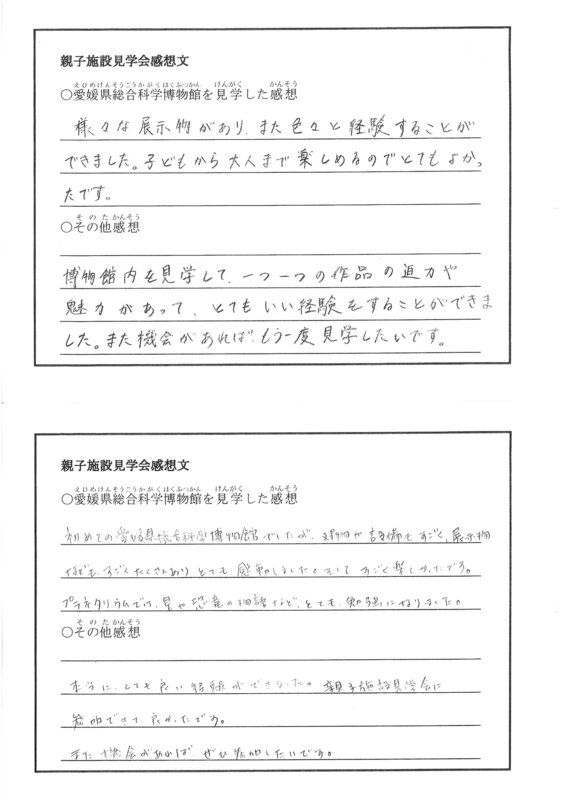 親子施設見学会感想文
えひめけんそうごうかがくはくぶつかん けんがく かんそう
○愛媛県総合科学博物館を見学した感想
様々な展示物があり、また色々と経験することが
できました。子どもから大人まで楽しめるのでとてもよかっ
たです。
そのたかんそう
○その他感想
博物館内を見学して、一つ一つの作品の迫力や
魅力があって、とてもいい経験をすることができま
した。また機会があれば、もう一度見学したいです。
親子施設見学会感想文
えひめけんそうごうかがくはくぶつかん けんがく かんそう
○愛媛県総合科学博物館を見学した感想
初めての愛媛県総合科学博物館でしたが、建物や設備もすごく、展示物
なども、すごくたくさんあり とても 感動しました。そして すごく楽しかったです。
プラネタリウムでは、星や恐竜の物語など、とても、勉強になりました。
そのたかんそう
○その他感想
本当に、とても良い経験ができました。親子施設見学会に
参加できて良かったです。
また機会があれば ぜひ参加したいです。